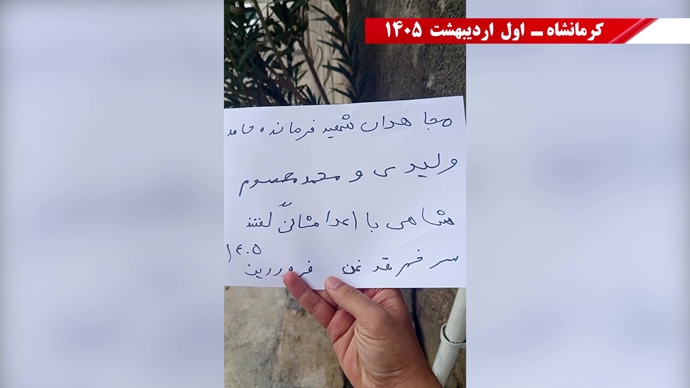 کرمانشاه – اول اردیبهشت ۱۴۰۵
مجاهدان شهید فرمانده حامد
ولیدی و محمد معصوم
شاهی با اعدامشان گفتند
سر فرو نمی فروردین ۱۴۰۵